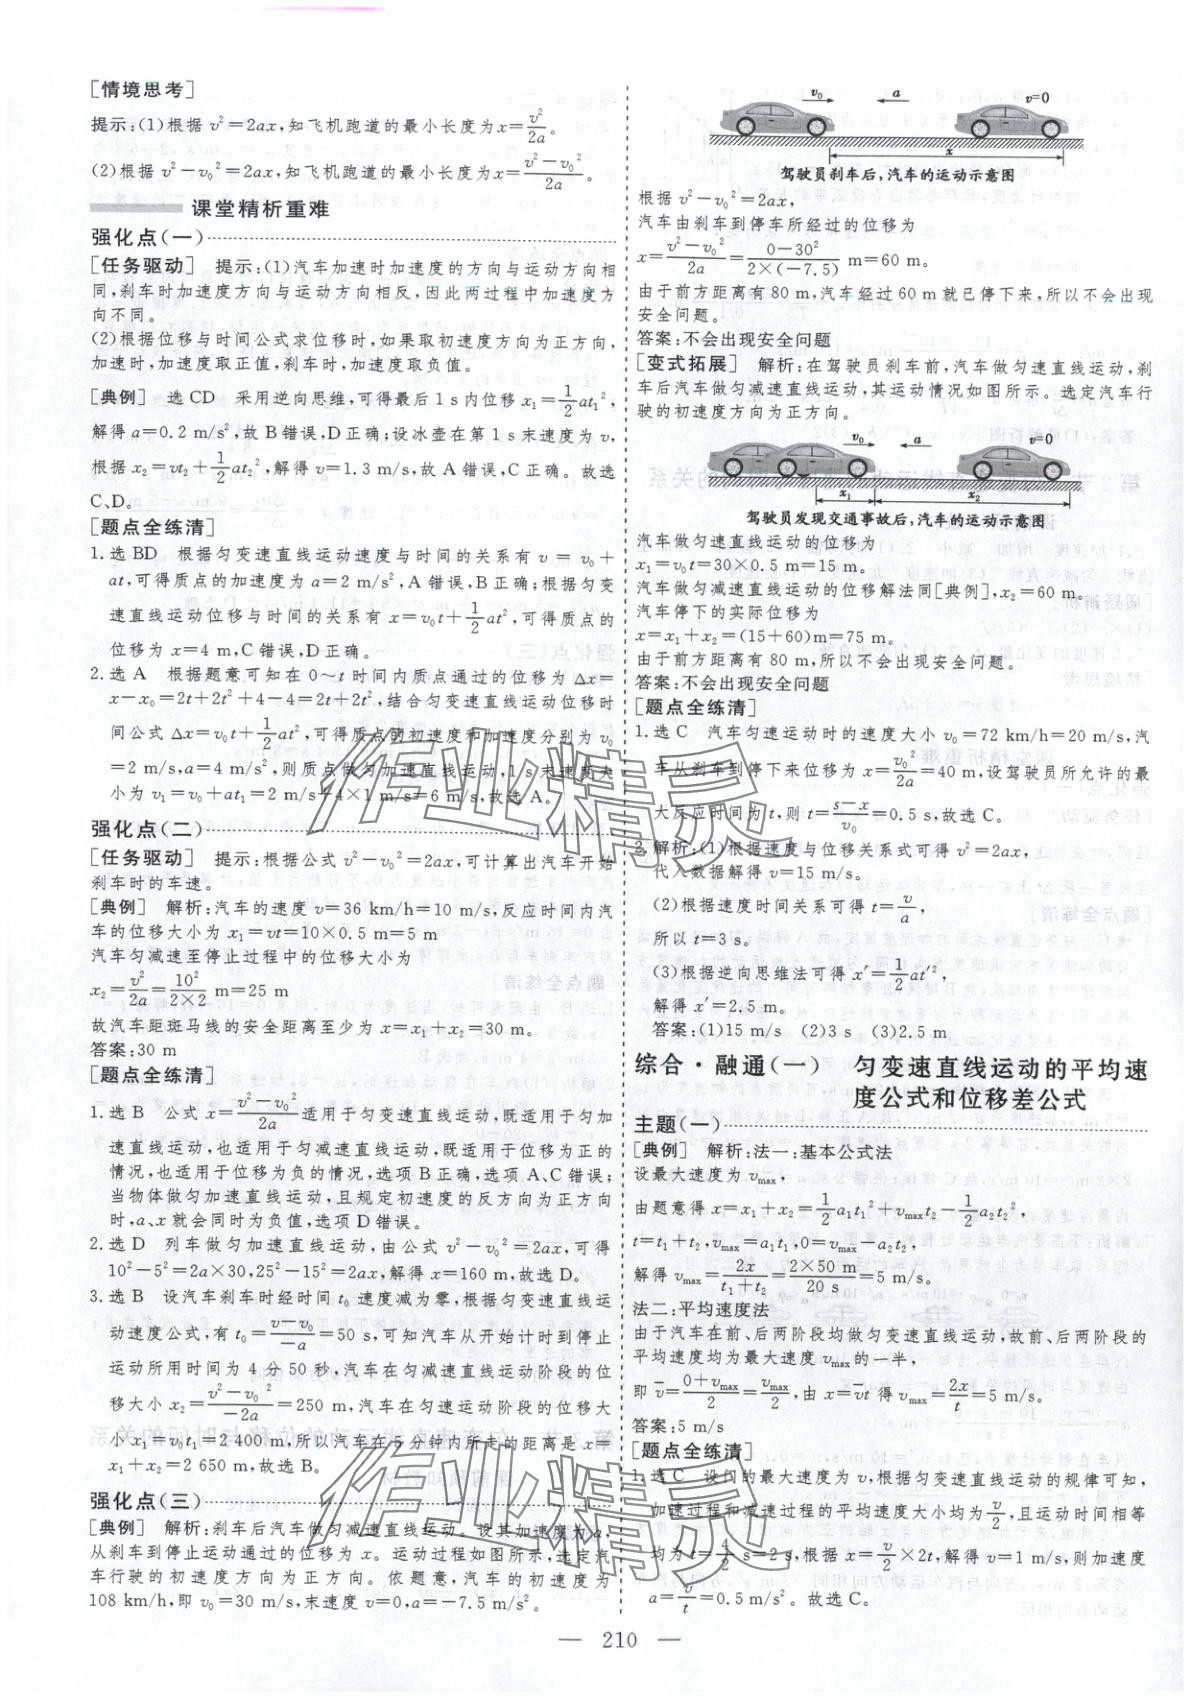 [情境思考]
提示:(1)根据 v²=2ax,知飞机跑道的最小长度为 x=v²/2a。
(2)根据 v²-v₀²=2ax,知飞机跑道的最小长度为 x=(v²-v₀²)/2a。
课堂精析重难
强化点(一)
[任务驱动] 提示:(1)汽车加速时加速度的方向与运动方向相
同,刹车时加速度方向与运动方向相反,因此两过程中加速度方
向不同。
(2)根据位移与时间公式求位移时,如果取初速度方向为正方向,
加速时,加速度取正值,刹车时,加速度取负值。
[典例] 选CD 采用逆向思维,可得最后1 s内位移 x₁=1/2at₁²,
解得 a=0.2 m/s²,故B错误,D正确;设冰壶在第1 s末速度为 v,
根据 x₂=vt₂+1/2at₂²,解得 v=1.3 m/s,故A错误,C正确。故选
C、D。
[题点全练清]
1.选BD 根据匀变速直线运动速度与时间的关系有 v=v₀+
at,可得质点的加速度为 a=2 m/s²,A错误,B正确;根据匀变
速直线运动位移与时间的关系有 x=v₀t+1/2at²,可得质点的
位移为 x=4 m,C错误,D正确。
2.选A 根据题意可知在 0~t 时间内质点通过的位移为 Δx=
x-x₀=2t+2t²+4-4=2t+2t²,结合匀变速直线运动位移时
间公式 Δx=v₀t+1/2at²,可得质点的初速度和加速度分别为 v₀
=2 m/s,a=4 m/s²,则质点做匀加速直线运动,1 s末速度大
小为 v₁=v₀+at₁=2 m/s+4×1 m/s=6 m/s,故选A。
强化点(二)
[任务驱动] 提示:根据公式 v²-v₀²=2ax,可计算出汽车开始
刹车时的车速。
[典例] 解析:汽车的速度 v=36 km/h=10 m/s,反应时间内汽
车的位移大小为 x₁=vt=10×0.5 m=5 m
汽车匀减速至停止过程中的位移大小为
x₂=v²/2a=10²/(2×2) m=25 m
故汽车距斑马线的安全距离至少为 x=x₁+x₂=30 m。
答案:30 m
[题点全练清]
1.选B 公式 x=(v²-v₀²)/2a 适用于匀变速直线运动,既适用于匀加
速直线运动,也适用于匀减速直线运动,既适用于位移为正的
情况,也适用于位移为负的情况,选项B正确,选项A、C错误;
当物体做匀加速直线运动,且规定初速度的反方向为正方向
时,a、x就会同时为负值,选项D错误。
2.选D 列车做匀加速直线运动,由公式 v²-v₀²=2ax,可得
10²-5²=2a×30,25²-15²=2ax,解得 x=160 m,故选D。
3.选B 设汽车刹车时经时间 t₀ 速度减为零,根据匀变速直线运
动速度公式,有 t₀=(v-v₀)/-a=50 s,可知汽车从开始计时到停止
运动所用时间为4分50秒,汽车在匀减速直线运动阶段的位
移大小 x₂=(v²-v₀²)/-2a=250 m,汽车在匀速运动阶段的位移大
小 x₁=v₀t₁=2 400 m,所以汽车在5分钟内所走的距离是 x=
x₁+x₂=2 650 m,故选B。
强化点(三)
[典例] 解析:刹车后汽车做匀减速直线运动。设其加速度为 a,
从刹车到停止运动通过的位移为 x。运动过程如图所示,选定汽
车行驶的初速度方向为正方向。依题意,汽车的初速度为
108 km/h,即 v₀=30 m/s,末速度 v=0,a=-7.5 m/s²。
v₀ a v=0
x
驾驶员刹车后,汽车的运动示意图
根据 v²-v₀²=2ax,
汽车由刹车到停车所经过的位移为
x=(v²-v₀²)/2a=(0-30²)/(2×(-7.5)) m=60 m。
由于前方距离有80 m,汽车经过60 m就已停下来,所以不会出现
安全问题。
答案:不会出现安全问题
[变式拓展] 解析:在驾驶员刹车前,汽车做匀速直线运动,刹
车后汽车做匀减速直线运动,其运动情况如图所示。选定汽车行
驶的初速度方向为正方向。
v₀ a v=0
x₁ x₂
驾驶员发现交通事故后,汽车的运动示意图
汽车做匀速直线运动的位移为
x₁=v₀t=30×0.5 m=15 m。
汽车做匀减速直线运动的位移解法同[典例],x₂=60 m。
汽车停下的实际位移为
x=x₁+x₂=(15+60)m=75 m。
由于前方距离有80 m,所以不会出现安全问题。
答案:不会出现安全问题
[题点全练清]
1.选C 汽车匀速运动时的速度大小 v₀=72 km/h=20 m/s,汽
车从刹车到停下来位移为 x=v₀²/2a=40 m,设驾驶员所允许的最
大反应时间为 t,则 t=(s-x)/v₀=0.5 s,故选C。
2.解析:(1)根据速度与位移关系式可得 v²=2ax,
代入数据解得 v=15 m/s。
(2)根据速度时间关系可得 t=v/a,
所以 t=3 s。
(3)根据逆向思维法可得 x′=1/2at′²,
解得 x′=2.5 m。
答案:(1)15 m/s (2)3 s (3)2.5 m
综合·融通(一) 匀变速直线运动的平均速
度公式和位移差公式
主题(一)
[典例] 解析:法一:基本公式法
设最大速度为 vmax,
由题意得 x=x₁+x₂=1/2a₁t₁²+vmaxt₂-1/2a₂t₂²,
t=t₁+t₂,vmax=a₁t₁,0=vmax-a₂t₂,
解得 vmax=2x/(t₁+t₂)=(2×50 m)/20 s=5 m/s。
法二:平均速度法
由于汽车在前、后两阶段均做匀变速直线运动,故前、后两阶段的
平均速度均为最大速度 vmax 的一半,
即 v̄=(0+vmax)/2=vmax/2,由 x=v̄t 得 vmax=2x/t=5 m/s。
答案:5 m/s
[题点全练清]
1.选C 设门的最大速度为 v,根据匀变速直线运动的规律可知,
加速过程和减速过程的平均速度大小均为 v/2,且运动时间相等
均为 t=4/2 s=2 s,根据 x=v/2×2t,解得 v=1 m/s,则加速度
a=v/t=0.5 m/s²。故选C。
— 210 —
作业精灵
作业精灵